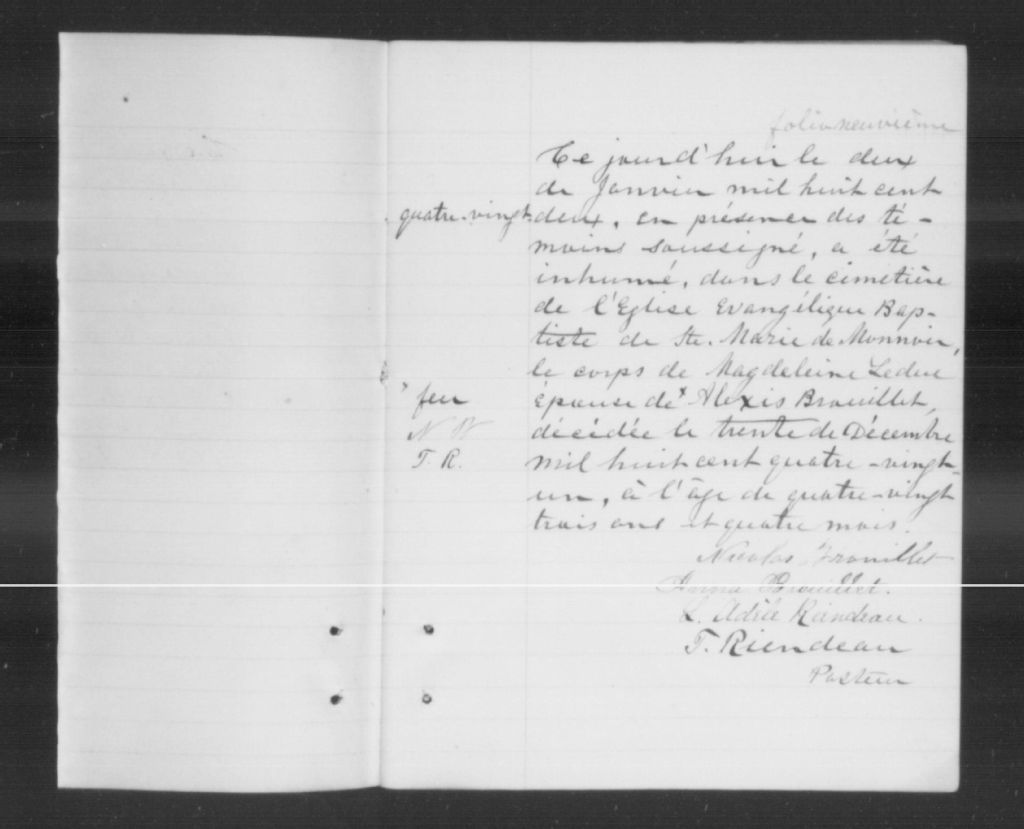 folio neuvième
Ce jourd'hui le deux
de Janvier mil huit cent
quatre-vingt-deux, en présence des té-
moins soussigné, a été
inhumé, dans le cimetière
de l'Eglise Evangélique Bap-
tiste de Ste. Marie de Monnoir,
le corps de Magdeleine Leduc
x feu
épouse de x Alexis Brouillet,
N B
décédée le trente de Décembre
T. R.
mil huit cent quatre-vingt-
un, à l'âge de quatre-vingt
trois ans et quatre mois.
Nicolas Brouillet
Anna Brouillet.
L. Riendeau.
T. Riendeau
Pasteur